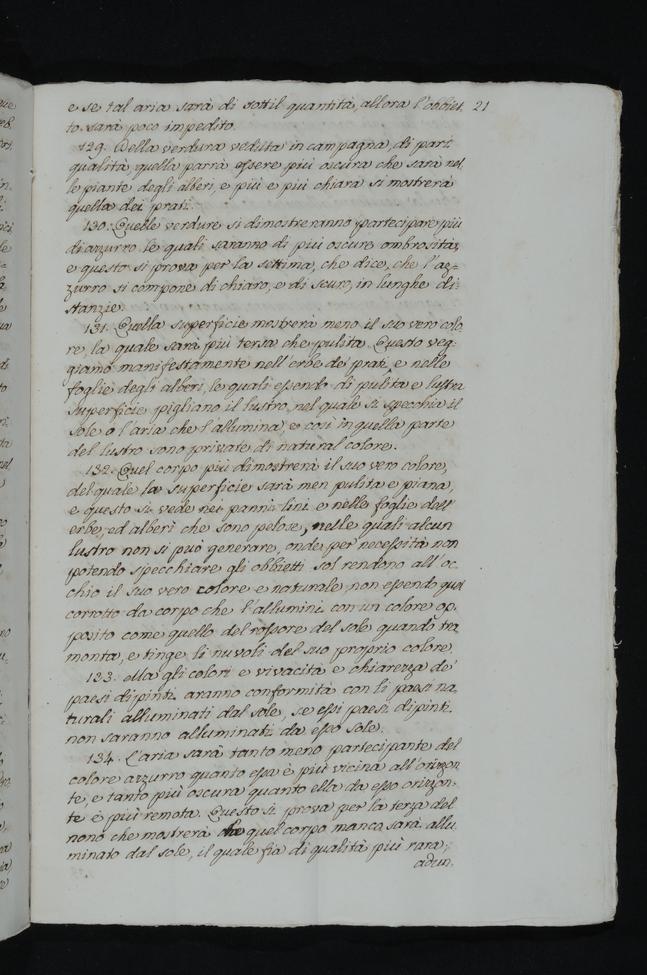 e se tal aria sarà di sottil quantità, allora l'obbiet 21
to sarà poco impedito.
129. Della verdura veduta in campagna, di pari
qualità quella parrà essere più oscura che sarà nel
le piante degli alberi, e più e più chiara si mostrerà
quella dei prati.
130. Quelle verdure si dimostreranno partecipare più
di azzurro le quali saranno di più oscure ombrosità,
e questo si prova per la settima, che dice, che l'az=
zurro si compone di chiaro, e di scuro, in lunghe di=
stanzie.
131. Quella superficie mostrerà meno il suo vero colo
re, la quale sarà più tersa che pulita. Questo veg=
giamo manifestamente nell'erbe de' prati, e nelle
foglie degli alberi, le quali essendo di pulita e lustra
superficie pigliano il lustro, nel quale si specchia il
sole o l'aria che l'allumina, e così in quella parte
del lustro sono private di natural colore.
132. Quel corpo più dimostrerà il suo vero colore,
del quale la superficie sarà men pulita e piana,
e questo si vede nei panni lini e nelle foglie dell'
erbe, ed alberi che sono pelose, nelle quali alcun
lustro non si può generare, onde per necessità non
potendo specchiare gli obbietti sol rendono all'oc
chio il suo vero colore e naturale, non essendo quel
corrotto da corpo che l'allumini con un colore op.
posito come quello del rossore del sole quando tra
monta, e tinge li nuvoli del suo proprio colore.
123. Ma gli colori e vivacità e chiarezza de'
paesi dipinti aranno conformità con li paesi na.
turali alluminati dal sole, se essi paesi dipinti
non saranno alluminati da esso sole.
134. L'aria sarà tanto meno partecipante del
colore azzurro quanto essa è più vicina all'orizzon
te, e tanto più oscura quanto ella da esso orizzon.
te è più remota. Questo si prova per la terza del
nono che mostrerà che quel corpo manco sarà allu
minato dal sole, il quale fia di qualità più rara;
adun.